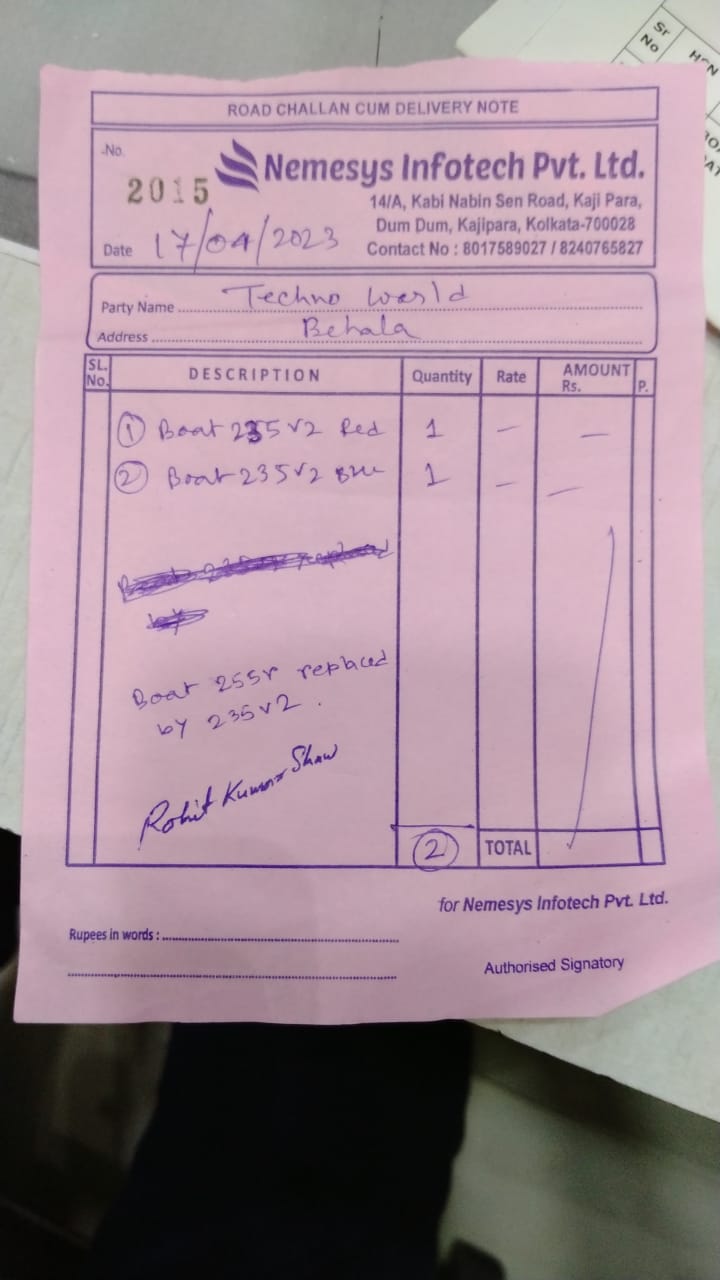 Sr
No
HSN
ROAD CHALLAN CUM DELIVERY NOTE
No.
2015
Nemesys Infotech Pvt. Ltd.
14/A, Kabi Nabin Sen Road, Kaji Para,
Dum Dum, Kajipara, Kolkata-700028
Date 17/04/2023 Contact No : 8017589027 / 8240765827
Party Name Techno World
Address Behala
SL. No. DESCRIPTION Quantity Rate AMOUNT Rs. P.
① Boat 235v2 Red 1 — —
② Boat 235v2 Blu 1 — —
Boat 255r replaced
by 235v2.
Rohit Kumar Shaw
② TOTAL
for Nemesys Infotech Pvt. Ltd.
Rupees in words :
Authorised Signatory